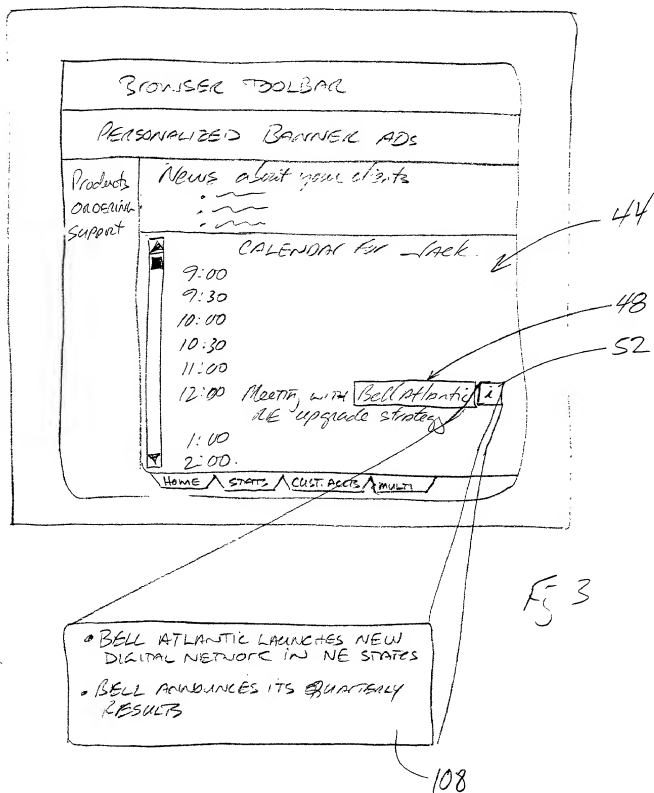 BROWSER TOOLBAR
PERSONALIZED BANNER ADS
Products
ORDERING
SUPPORT
News about your clients
CALENDAR FOR JACK
44
9:00
9:30
10:00
10:30
11:00
48
52
12:00 Meeting WITH Bell Atlantic i
RE upgrade strategy
1:00
2:00
HOME STATS CUST. ACCTS MULTI
Fig 3
• BELL ATLANTIC LAUNCHES NEW
DIGITAL NETWORK IN NE STATES
• BELL ANNOUNCES ITS QUARTERLY
RESULTS
108